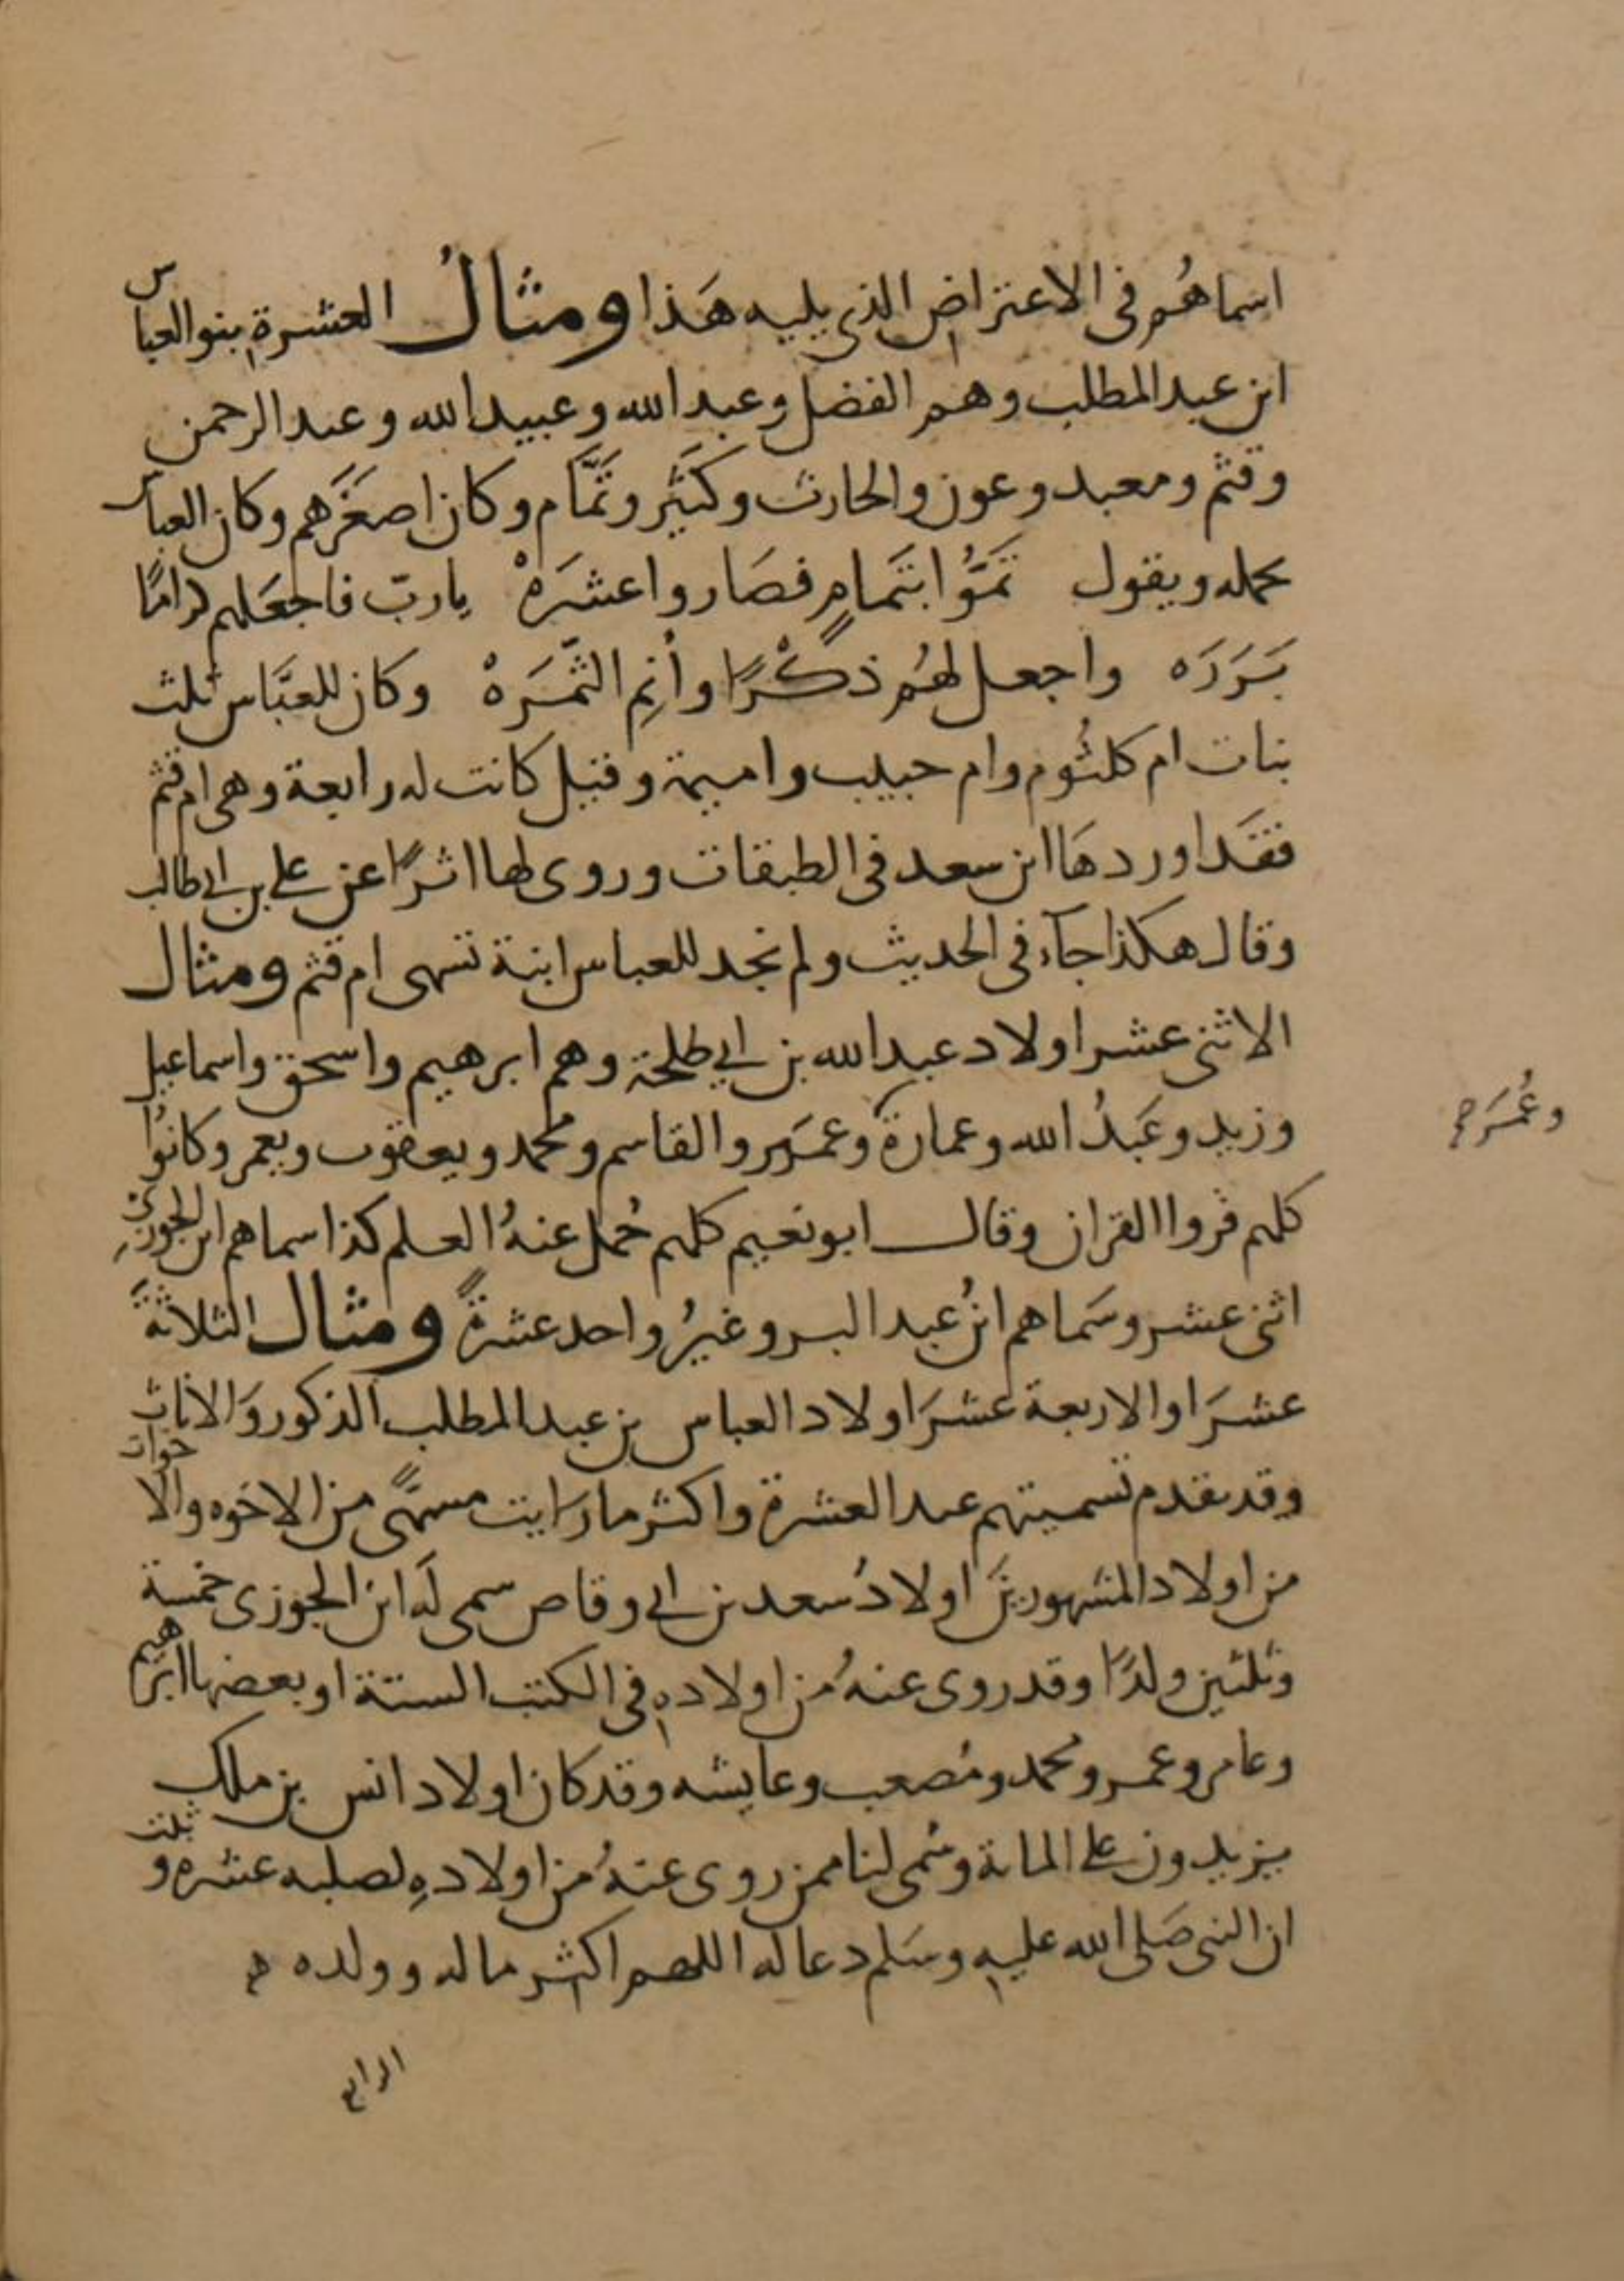 اسماهُم فى الاعتراض الذى يليه هَذا ومثالُ العشرة بنو العباس
ابن عبد المطلب وهم الفضل وعبد الله وعبيد الله وعبد الرحمن
وقثم ومعبد وعون والحارث وكَثير وتَمَّام وكان اصغَرَهم وكان العباس
يحمله ويقول تَمُّوا بتَمامٍ فصَاروا عشَرَهْ يا ربّ فاجعَلهم كرامًا
بَرَرَه واجعل لهُم ذكْرًا وأنمِ الثَّمَرَهْ وكان للعبَّاس ثلث
بنات ام كلثُوم وام حبيب واميمة وقيل كانت له رابعة وهى ام قثم
فقَد اوردهَا ابن سعد فى الطبقات وروى لها اثرًا عن على بن ابى طالب
وقال هكذا جآء فى الحديث ولم نجد للعباس ابنة تسمى ام قثم ومثال
الاثنى عشر اولاد عبد الله بن ابى طلحة وهم ابرهيم واسحق واسماعيل
وزيد وعَبدُ الله وعمارة وعمَير والقاسم ومحمد ويعقوب ويعمر وكانوُا
وعُمَر صح
كلهم قروا القران وقال ابو نعيم كلهم حُمل عنهُ العلم كذا سماهم ابن الجوزى
اثنى عشر وسَماهم ابنُ عبد البر وغيرُ واحد عشرةً ومثال الثلاثةَ
عشرَ او الاربعة عشرَ اولاد العباس بن عبد المطلب الذكور وَالاناث
وقد تقدم تسميتهم عند العشرة واكثر ما رَايت مسمًّى من الاخوه والاخوات
من اولاد المشهورينَ اولادُ سعد بن ابى وقاص سمى لَه ابن الجوزى خمسة
وثلثين ولدًا وقد روى عنهُ من اولادهِ فى الكتب الستة او بعضها ابرهيم
وعامر وعمر ومحمد ومُصعب وعايشه وقد كان اولاد انس بن ملك
يزيدون على المائة وسُمى لنا ممن روى عنهُ من اولادهِ لصلبه عشره وثبت
ان النبى صَلى الله عليهِ وسَلم دعا له اللهم اكثر ماله وولده
الرابع